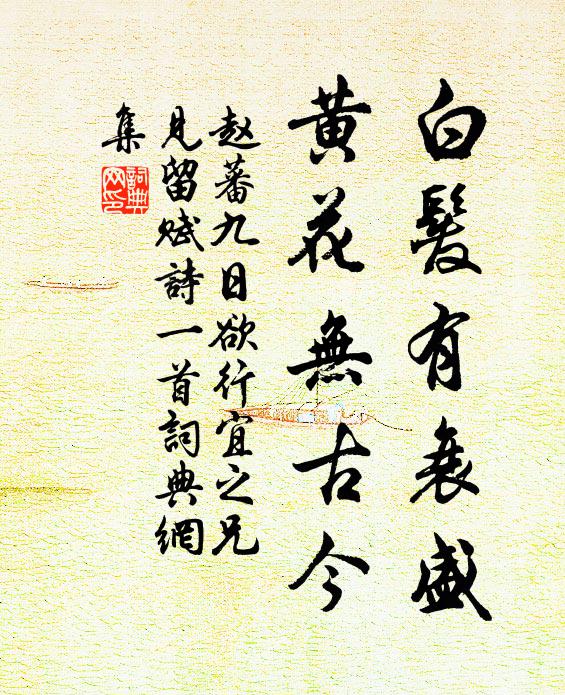 白髮有衰盛
黃花無古今
赵蕃九日欲行宜之兄
見留賦詩一首詞典網
集
詞典
网印